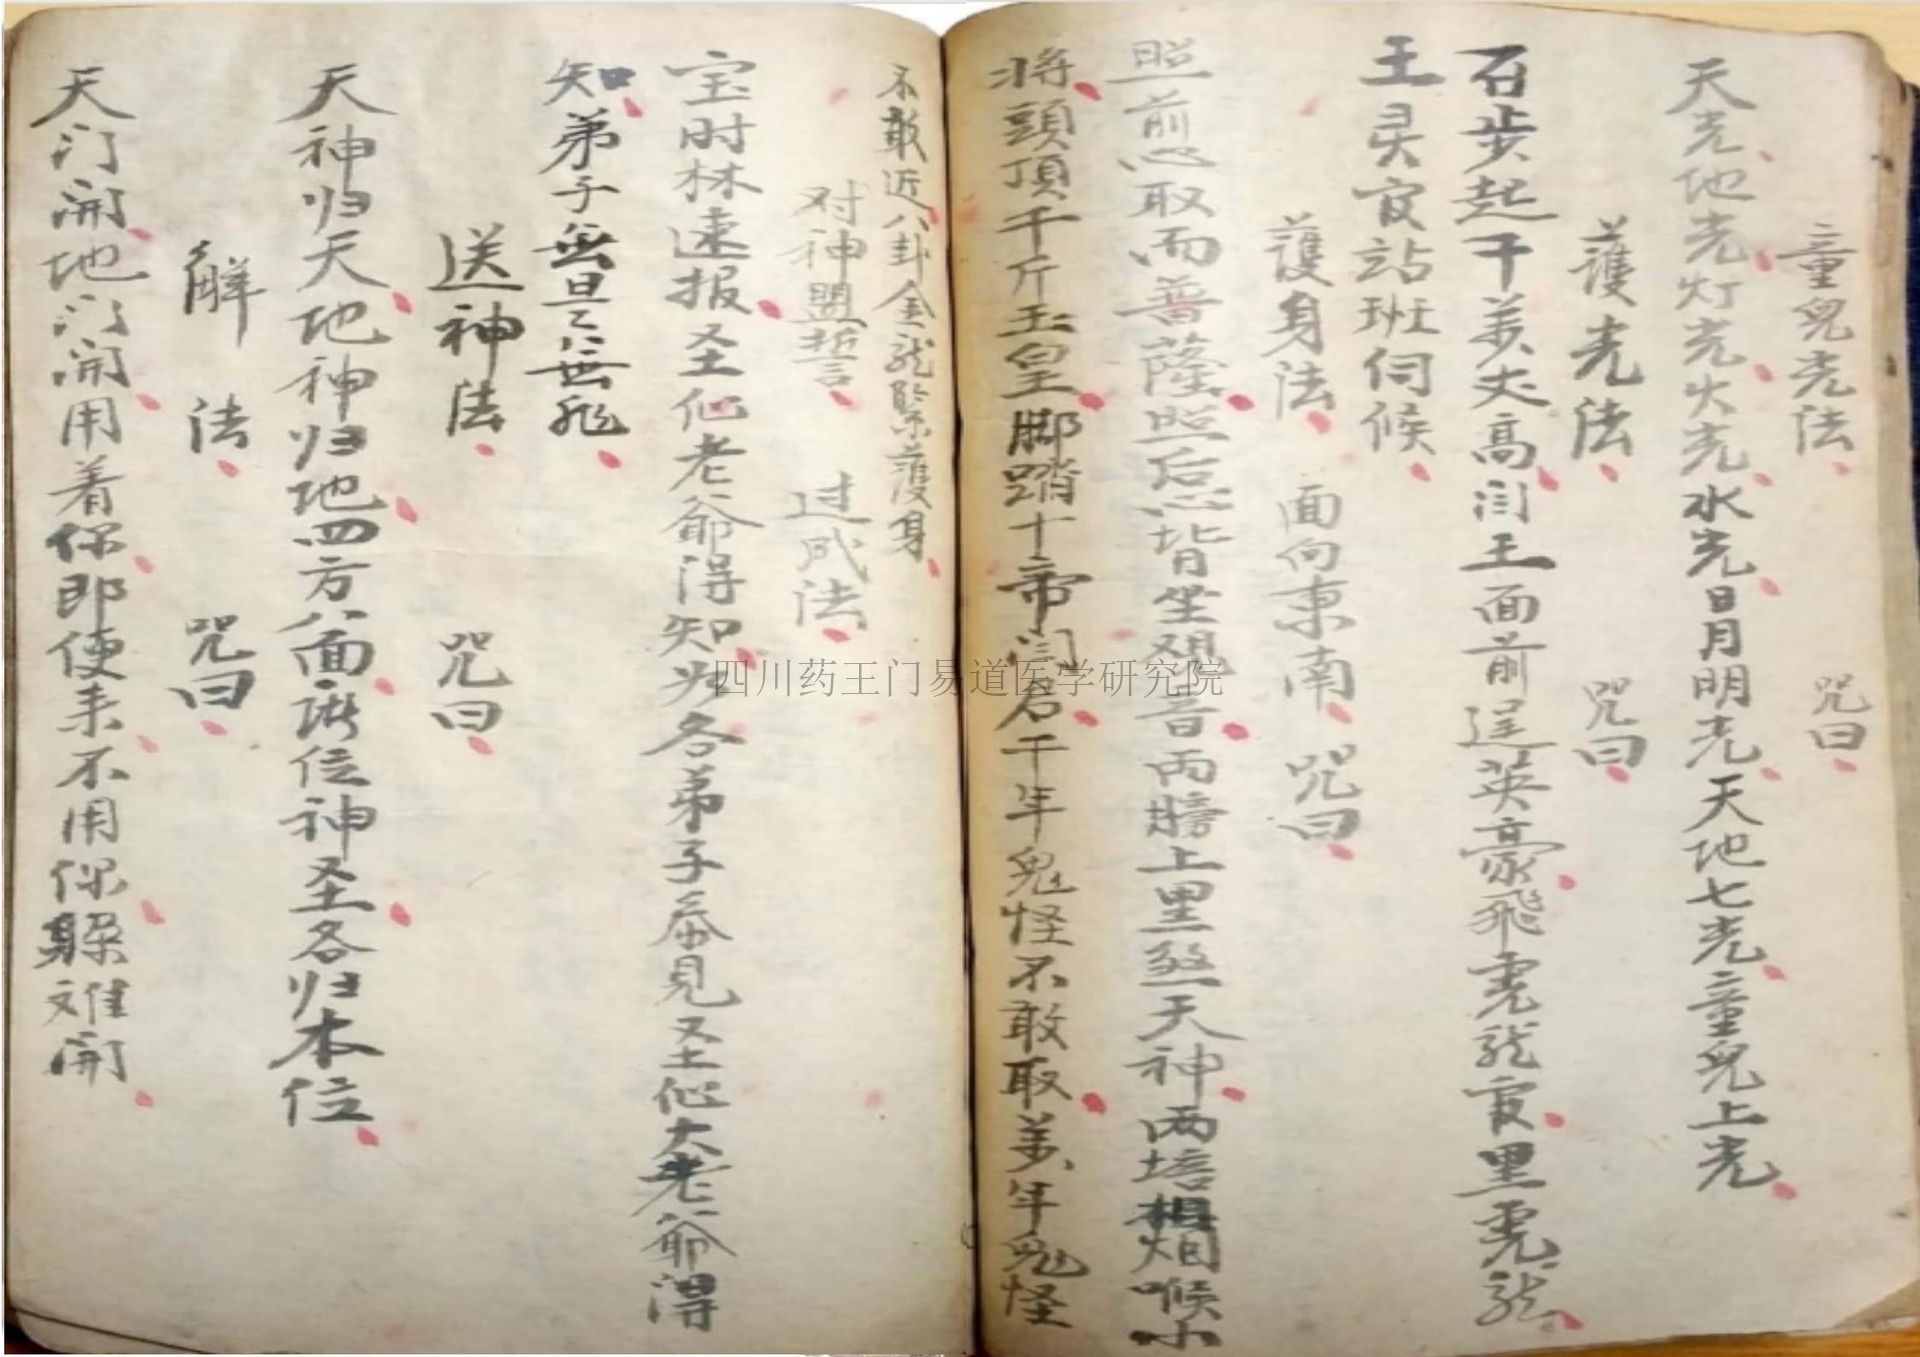 童兒光法 咒曰
天光地光灯光火光水光日月明光天地七光童兒上光
護光法 咒曰
召步起千萬丈高闫王面前逞英豪飛虎龍官黑虎龍
王灵官站班伺候
護身法 面向東南 咒曰
照前心取而普薩照后心背坐观音两膀上黑煞天神两培相烟喉小
將頭頂千斤玉皇脚踏十帝闫君千年鬼怪不敢取萬年鬼怪
不敢近八卦金龍緊護身
对神盟誓 过成法
宝时林速报圣他老爺得知归各弟子叅見圣他大老爺得
知弟子無旦無
送神法 咒曰
天神归天地神归地四方八面諸位神圣各归本位
解法 咒曰
天门開地门開用着你即便来不用你躲难開
四川药王门易道医学研究院